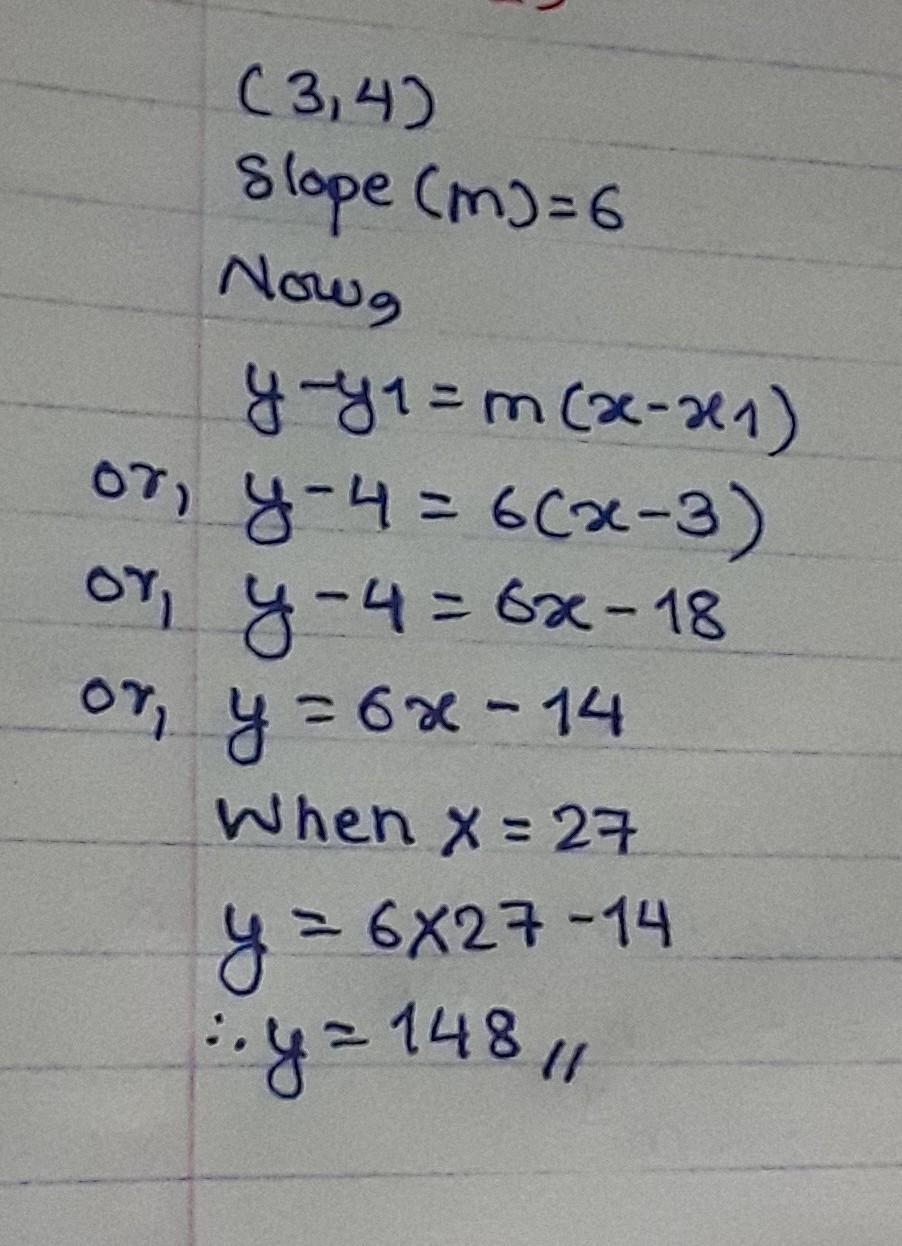 (3,4)
Slope (m)=6
Now,
y-y1=m(x-x1)
or, y-4=6(x-3)
or, y-4=6x-18
or, y=6x-14
When x=27
y=6×27-14
∴y=148//